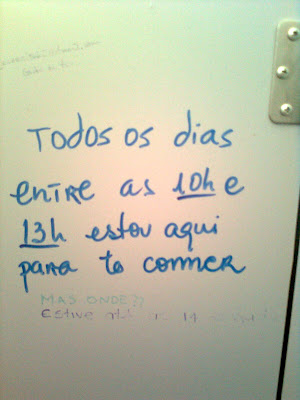 Todos os dias
entre as 10h e
13h estou aqui
para te commer
MAS ONDE??
Estive